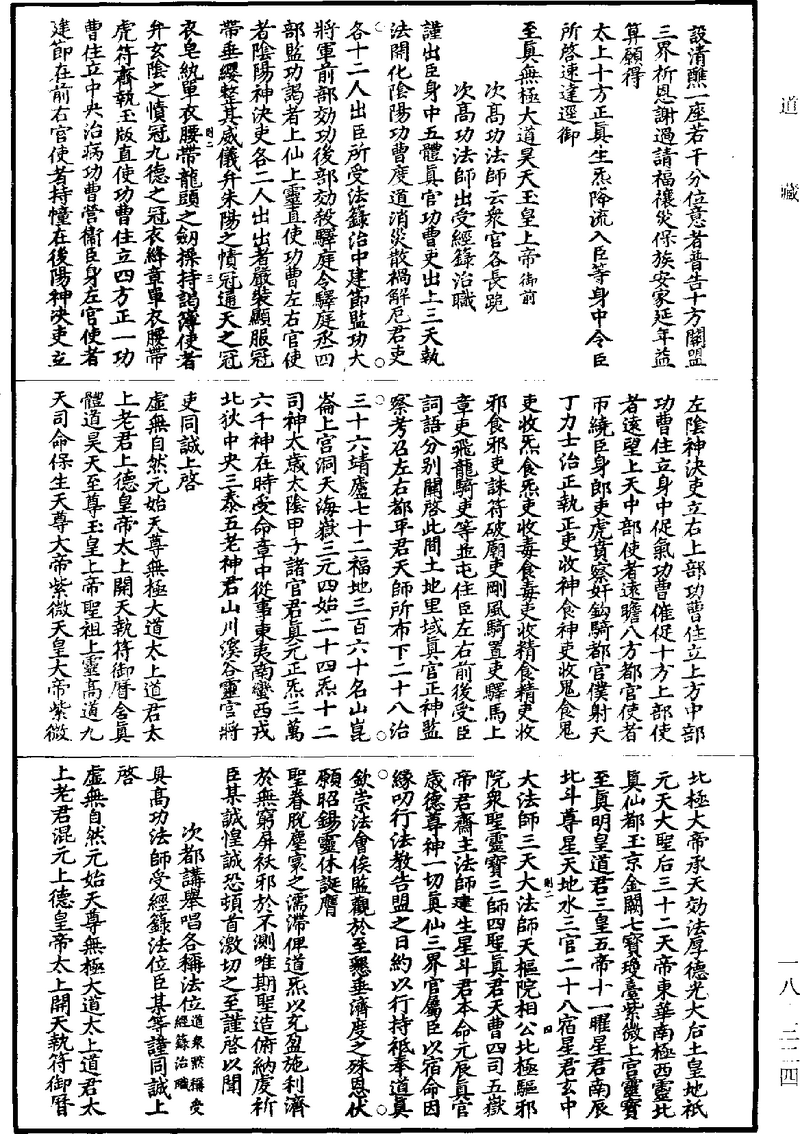 道藏
一八·三二四
設清醮一座若干分位意者普告十方關盟
三界祈恩謝過請福禳災保族安家延年益
算願得
太上十方正真生炁降流入臣等身中令臣
所啓速達逕御
至真無極大道昊天玉皇上帝御前
次高功法師云衆官各長跪
次高功法師出受經籙治職
謹出臣身中五體真官功曹吏出上三天執
法開化陰陽功曹度道消災散禍解厄君吏
各十二人出臣所受法籙治中建節監功大
將軍前部効功後部効殺驛庭令驛庭丞四
部監功謁者上仙上靈直使功曹左右官使
者陰陽神決吏各二人出出者嚴裝顯服冠
帶垂纓整其威儀弁朱陽之幘冠通天之冠
衣皂紈單衣腰帶龍頭之劒操持謁簿使者
弁玄陰之幘冠九德之冠衣絳章單衣腰帶
虎符齎執玉版直使功曹住立四方正一功
曹住立中央治病功曹營衞臣身左官使者
建節在前右官使者持幢在後陽神決吏立
左陰神決吏立右上部功曹住立上方中部
功曹住立身中促氣功曹催促十方上部使
者遠望上天中部使者遠瞻八方都官使者
帀繞臣身郎吏虎賁察奸鈎騎都官僕射天
丁力士治正執正吏收神食神吏收鬼食鬼
吏收炁食炁吏收毒食毒吏收精食精吏收
邪食邪吏誅符破廟吏剛風騎置吏驛馬上
章吏飛龍騎吏等並屯住臣左右前後受臣
詞語分别關啓此間土地里域真官正神監
察考召左右都平君天師所布下二十八治
三十六靖廬七十二福地三百六十名山崑
崙上宮洞天海嶽三元四始二十四炁十二
司神太歲太陰甲子諸官君真元正炁三萬
六千神在時受命章中從事東夷南蠻西戎
北狄中央三秦五老神君山川溪谷靈官將
吏同誠上啓
虛無自然元始天尊無極大道太上道君太
上老君上德皇帝太上開天執符御曆含真
體道昊天至尊玉皇上帝聖祖上靈高道九
天司命保生天尊大帝紫微天皇大帝紫微
北極大帝承天効法厚德光大后土皇地祇
元天大聖后三十二天帝東華南極西靈北
真仙都玉京金闕七寶瓊臺紫微上宮靈寶
至真明皇道君三皇五帝十一曜星君南辰
北斗尊星天地水三官二十八宿星君玄中
大法師三天大法師天樞院相公北極驅邪
院衆聖靈寶三師四聖真君天曹四司五嶽
帝君齋主法師建生星斗君本命元辰真官
歲德尊神一切真仙三界官屬臣以宿命因
緣叨行法教告盟之日約以行持祇奉道真
欽崇法會俟監觀於至懇垂濟度之殊恩伏
願昭錫靈休誕膺
聖眷脫塵寰之濡滯俾道炁以充盈施利濟
於無窮屏袄邪於不測唯期聖造俯納虔祈
臣某誠惶誠恐頓首激切之至謹啓以聞
次都講舉唱各稱法位道衆默稱受經籙治職
具高功法師受經籙法位臣某等謹同誠上
啓
虛無自然元始天尊無極大道太上道君太
上老君混元上德皇帝太上開天執符御曆